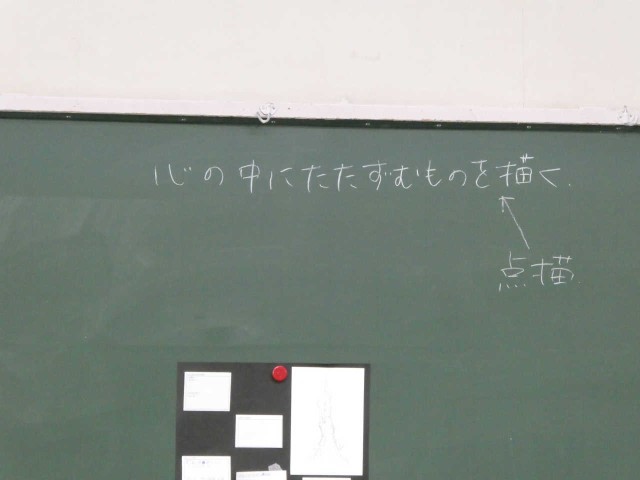 心の中にたたずむものを描く.
点描